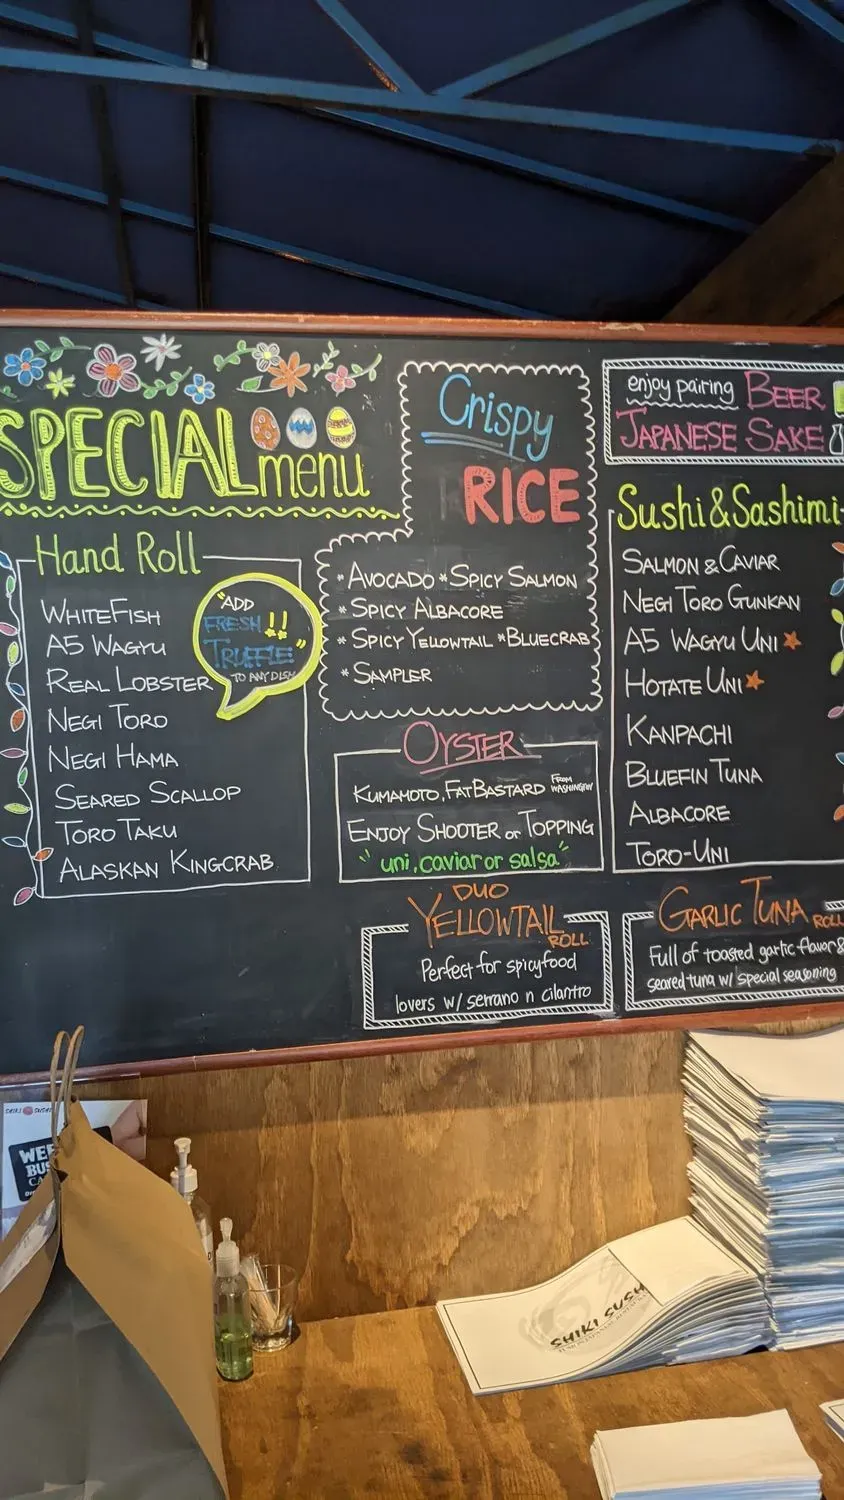 SPECIAL menu
Hand Roll
WHITEFISH
A5 WAGYU
REAL LOBSTER
NEGI TORO
NEGI HAMA
SEARED SCALLOP
TORO TAKU
ALASKAN KINGCRAB
"ADD
FRESH !!
TRUFFLE"
TO ANY DISH
Crispy
RICE
*AVOCADO *SPICY SALMON
*SPICY ALBACORE
*SPICY YELLOWTAIL *BLUECRAB
*SAMPLER
OYSTER
KUMAMOTO, FAT BASTARD FROM WASHINGTON
ENJOY SHOOTER or TOPPING
"uni, caviar or salsa"
DUO
YELLOWTAIL
ROLL
Perfect for spicyfood
lovers w/ serrano n cilantro
enjoy pairing BEER
JAPANESE SAKE
Sushi & Sashimi
SALMON & CAVIAR
NEGI TORO GUNKAN
A5 WAGYU UNI
HOTATE UNI
KANPACHI
BLUEFIN TUNA
ALBACORE
TORO-UNI
GARLIC TUNA ROLL
Full of toasted garlic flavor &
seared tuna w/ special seasoning
SHIKI SUSHI
SHIKI SUSHI